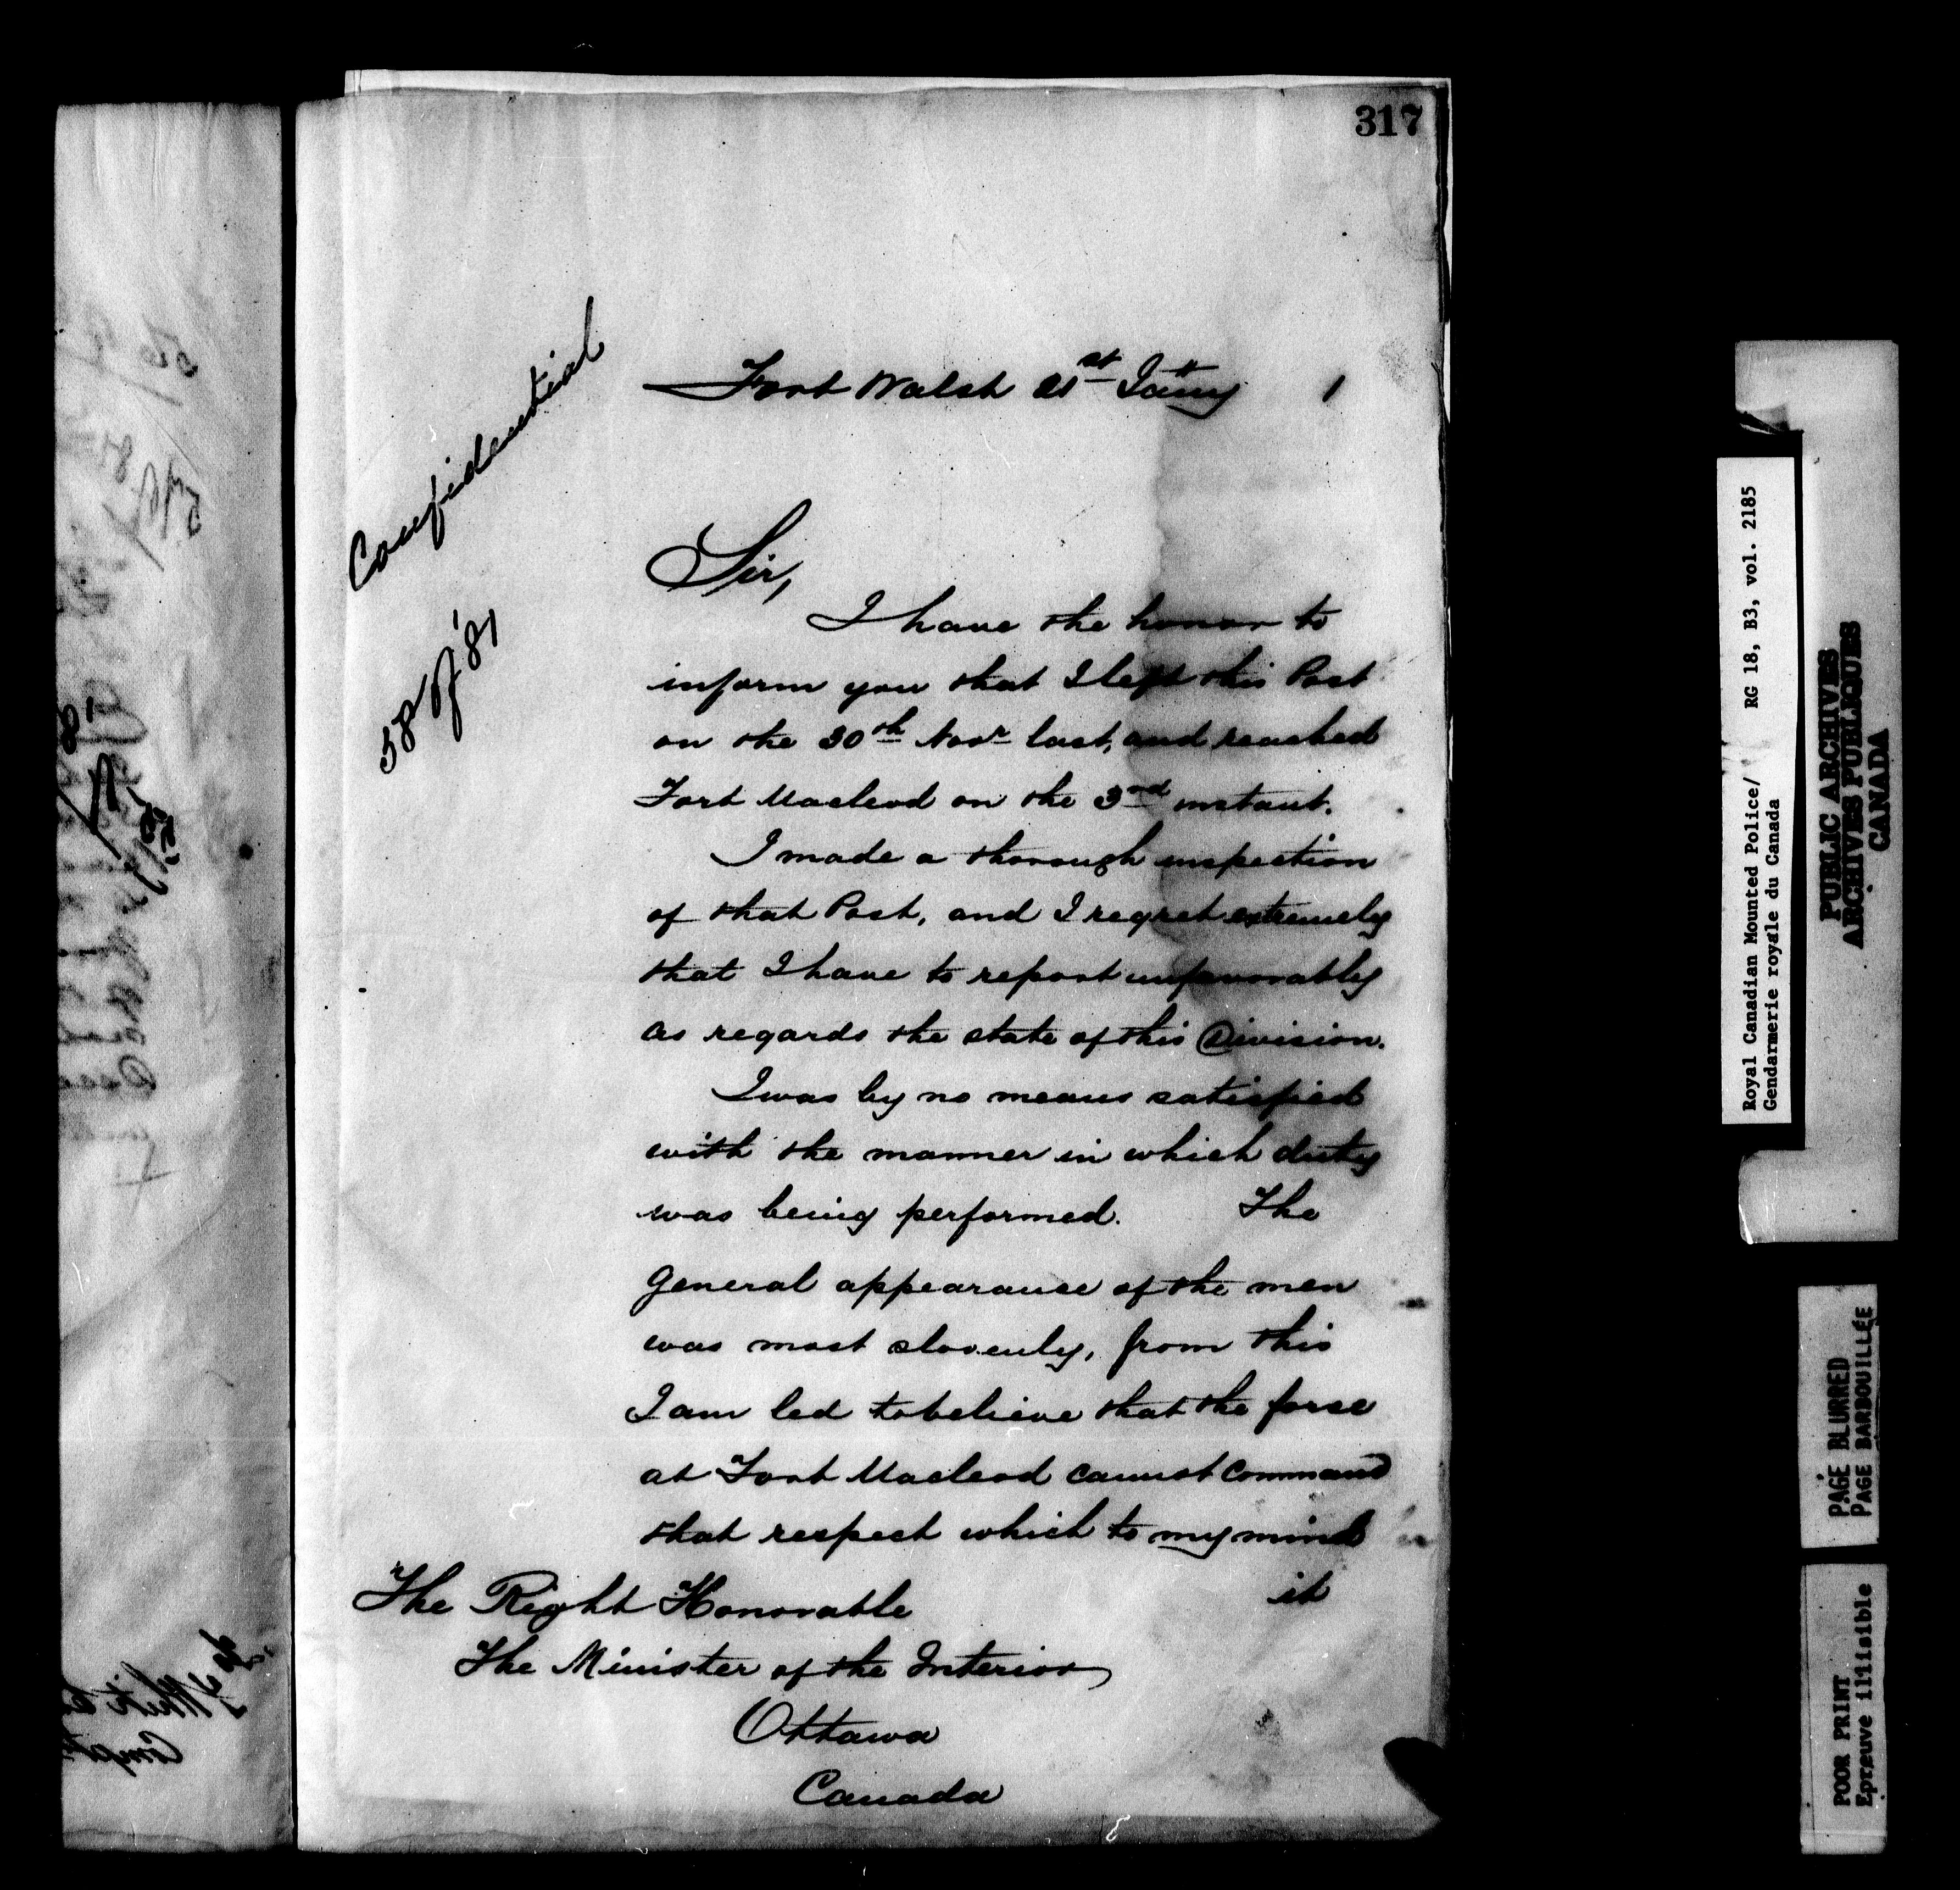 317
Confidential
58 of '81
Fort Walsh 21st Jany 1
Sir,
I have the honor to
inform you that I left this Post
on the 30th Novr last, and reached
Fort Macleod on the 3rd instant.
I made a thorough inspection
of that Post, and I regret extremely
that I have to report unfavorably
as regards the state of this Division.
I was by no means satisfied
with the manner in which duty
was being performed. The
General appearance of the men
was most slovenly, from this
I am led to believe that the force
at Fort Macleod cannot command
that respect which to my mind
it
The Right Honorable
The Minister of the Interior
Ottawa
Canada
Royal Canadian Mounted Police/ RG 18, B3, vol. 2185
Gendarmerie royale du Canada
PUBLIC ARCHIVES
ARCHIVES PUBLIQUES
CANADA
PAGE BLURRED
PAGE BARBOUILLÉE
POOR PRINT
Epreuve illisible